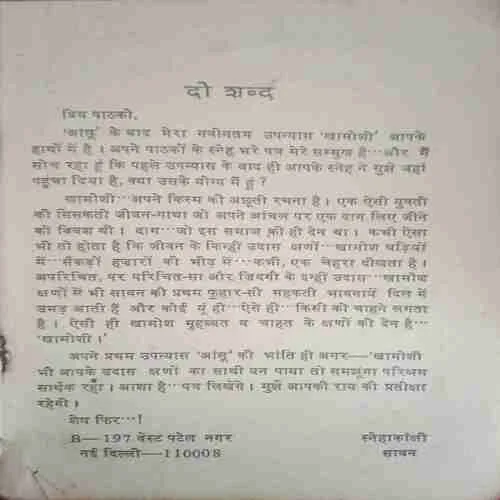 दो शब्द
प्रिय पाठको,
'आंसू' के बाद मेरा नवीनतम उपन्यास 'खामोशी' आपके
हाथों में है । अपने पाठकों के स्नेह भरे पत्र मेरे सम्मुख है···और मैं
सोच रहा हूं कि पहले उपन्यास के बाद ही आपके स्नेह ने मुझे जहां
पहुंचा दिया है, क्या उसके योग्य मैं हूं ?
खामोशी···अपने किस्म की अछूती रचना है । एक ऐसी युवती
की सिसकती जीवन-गाथा जो अपने आंचल पर एक दाग लिए जीने
को विवश थी । दाग···जो इस समाज की ही देन था । कभी ऐसा
भी तो होता है कि जीवन के किन्हीं उदास क्षणों···खामोश घड़ियों
में···सैंकड़ों हजारों की भीड़ में···कभी, एक चेहरा दीखता है ।
अपरिचित, पर परिचित-सा और जिंदगी के इन्हीं उदास···खामोश
क्षणों में भी सावन की प्रथम फुहार-सी महकती भावनायें दिल में
उमड़ आती हैं और कोई यूं ही···ऐसे ही···किसी को चाहने लगता
है । ऐसी ही खामोश मुहब्बत व चाहत के क्षणों की देन है···
'खामोशी ।'
अपने प्रथम उपन्यास 'आंसू' की भांति ही अगर—'खामोशी
भी आपके उदास क्षणों का साथी बन पाया तो समझूंगा परिश्रम
सार्थक रहा । आशा है···पत्र लिखेंगे । मुझे आपकी राय की प्रतीक्षा
रहेगी ।
शेष फिर···!
B—197 वेस्ट पटेल नगर स्नेहाकांक्षी
नई दिल्ली—110008 सावन